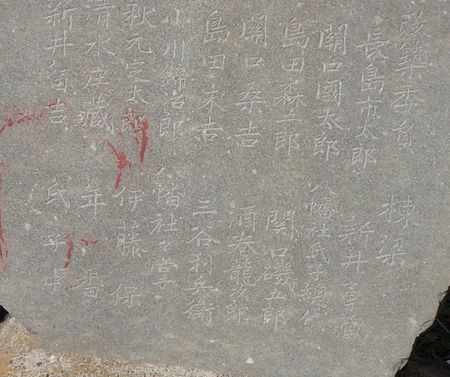 改築委員
長島市太郎
關口國太郎
島田森五郎
關口桑吉
島田末吉
小川錦治郎
秋元定太郎
清水庄藏
新井吉
棟梁
新井藏
八幡社氏子總代
関口磯五郎
酒巻龍次郎
三谷利兵衛
八幡社々掌
伊藤保
年番
氏子中